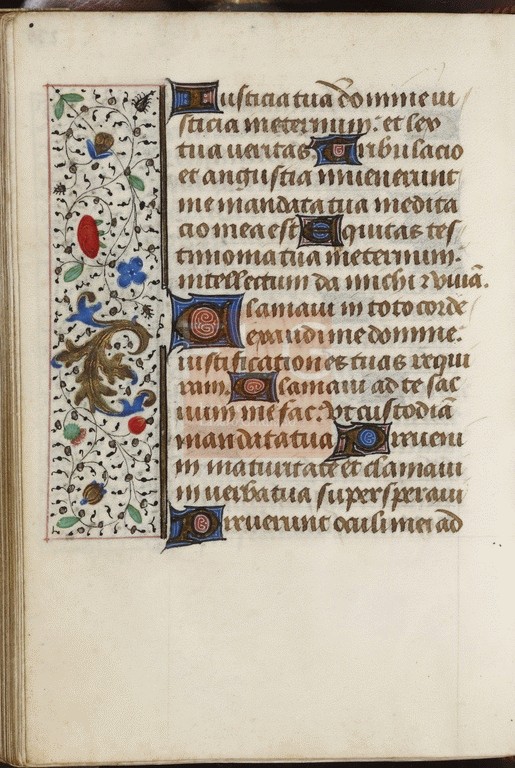 Iusticia tua domine iu
sticia in eternum: et lex
tua veritas Tribulacio
et angustia invenerunt
me mandata tua medita
cio mea est Equitas tes
timonia tua in eternum.
intellectum da michi z viuā.
Clamaui in toto corde
exaudi me domine:
iustificationes tuas requi
ram Clamaui ad te sal
uum me fac: vt custodiā
mandata tua Preueni
in maturitate et clamaui
in verba tua supersperaui
Preuerunt oculi mei ad